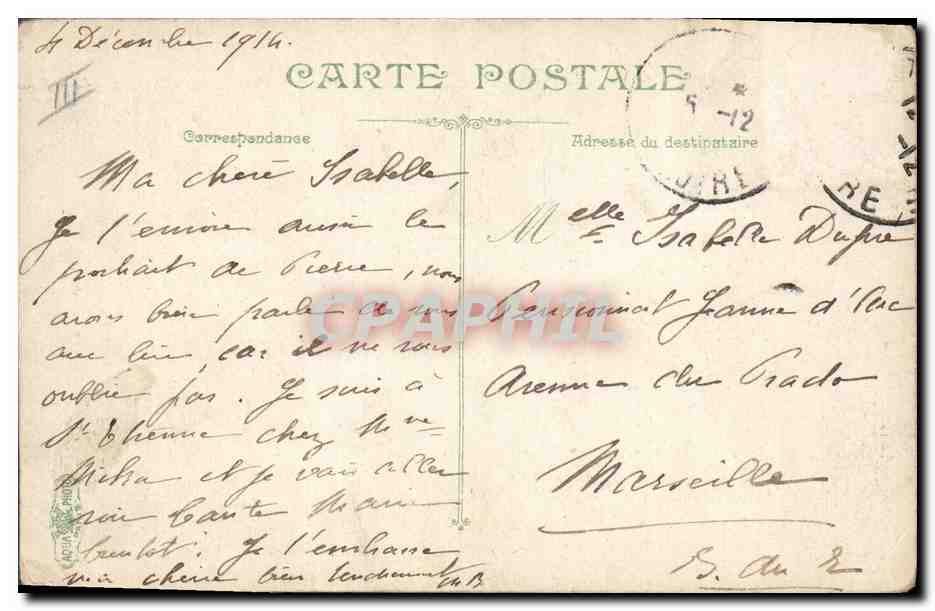 4 Décembre 1914.
III
CARTE POSTALE
5 -12
OIRE
12 -12
RE
Correspondance
Adresse du destinataire
Ma chère Isabelle,
Je t'envoie aussi le
portrait de Pierre, nous
avons bien parlé de vous
avec lui, car il ne vous
oublie pas. Je suis à
St Etienne chez Mme
et je vais aller
voir tante Marie
bientôt. Je t'embrasse
ma chérie bien tendrement
Melle Isabelle Dupré
Pensionnat Jeanne d'Arc
Avenue du Prado
Marseille
B. du R
CPAPHIL
AQUA PHOTO